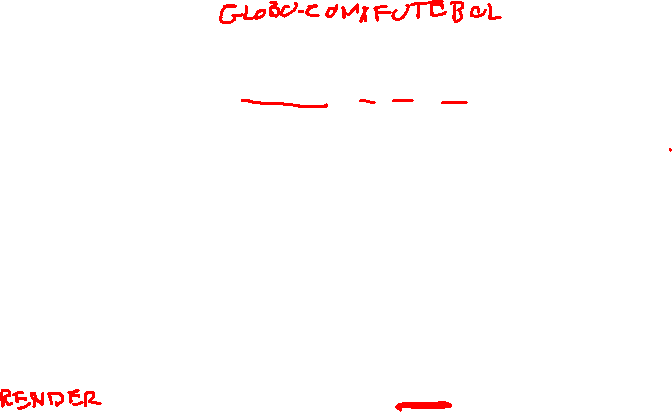 GLOBO.COM/FUTEBOL
RENDER